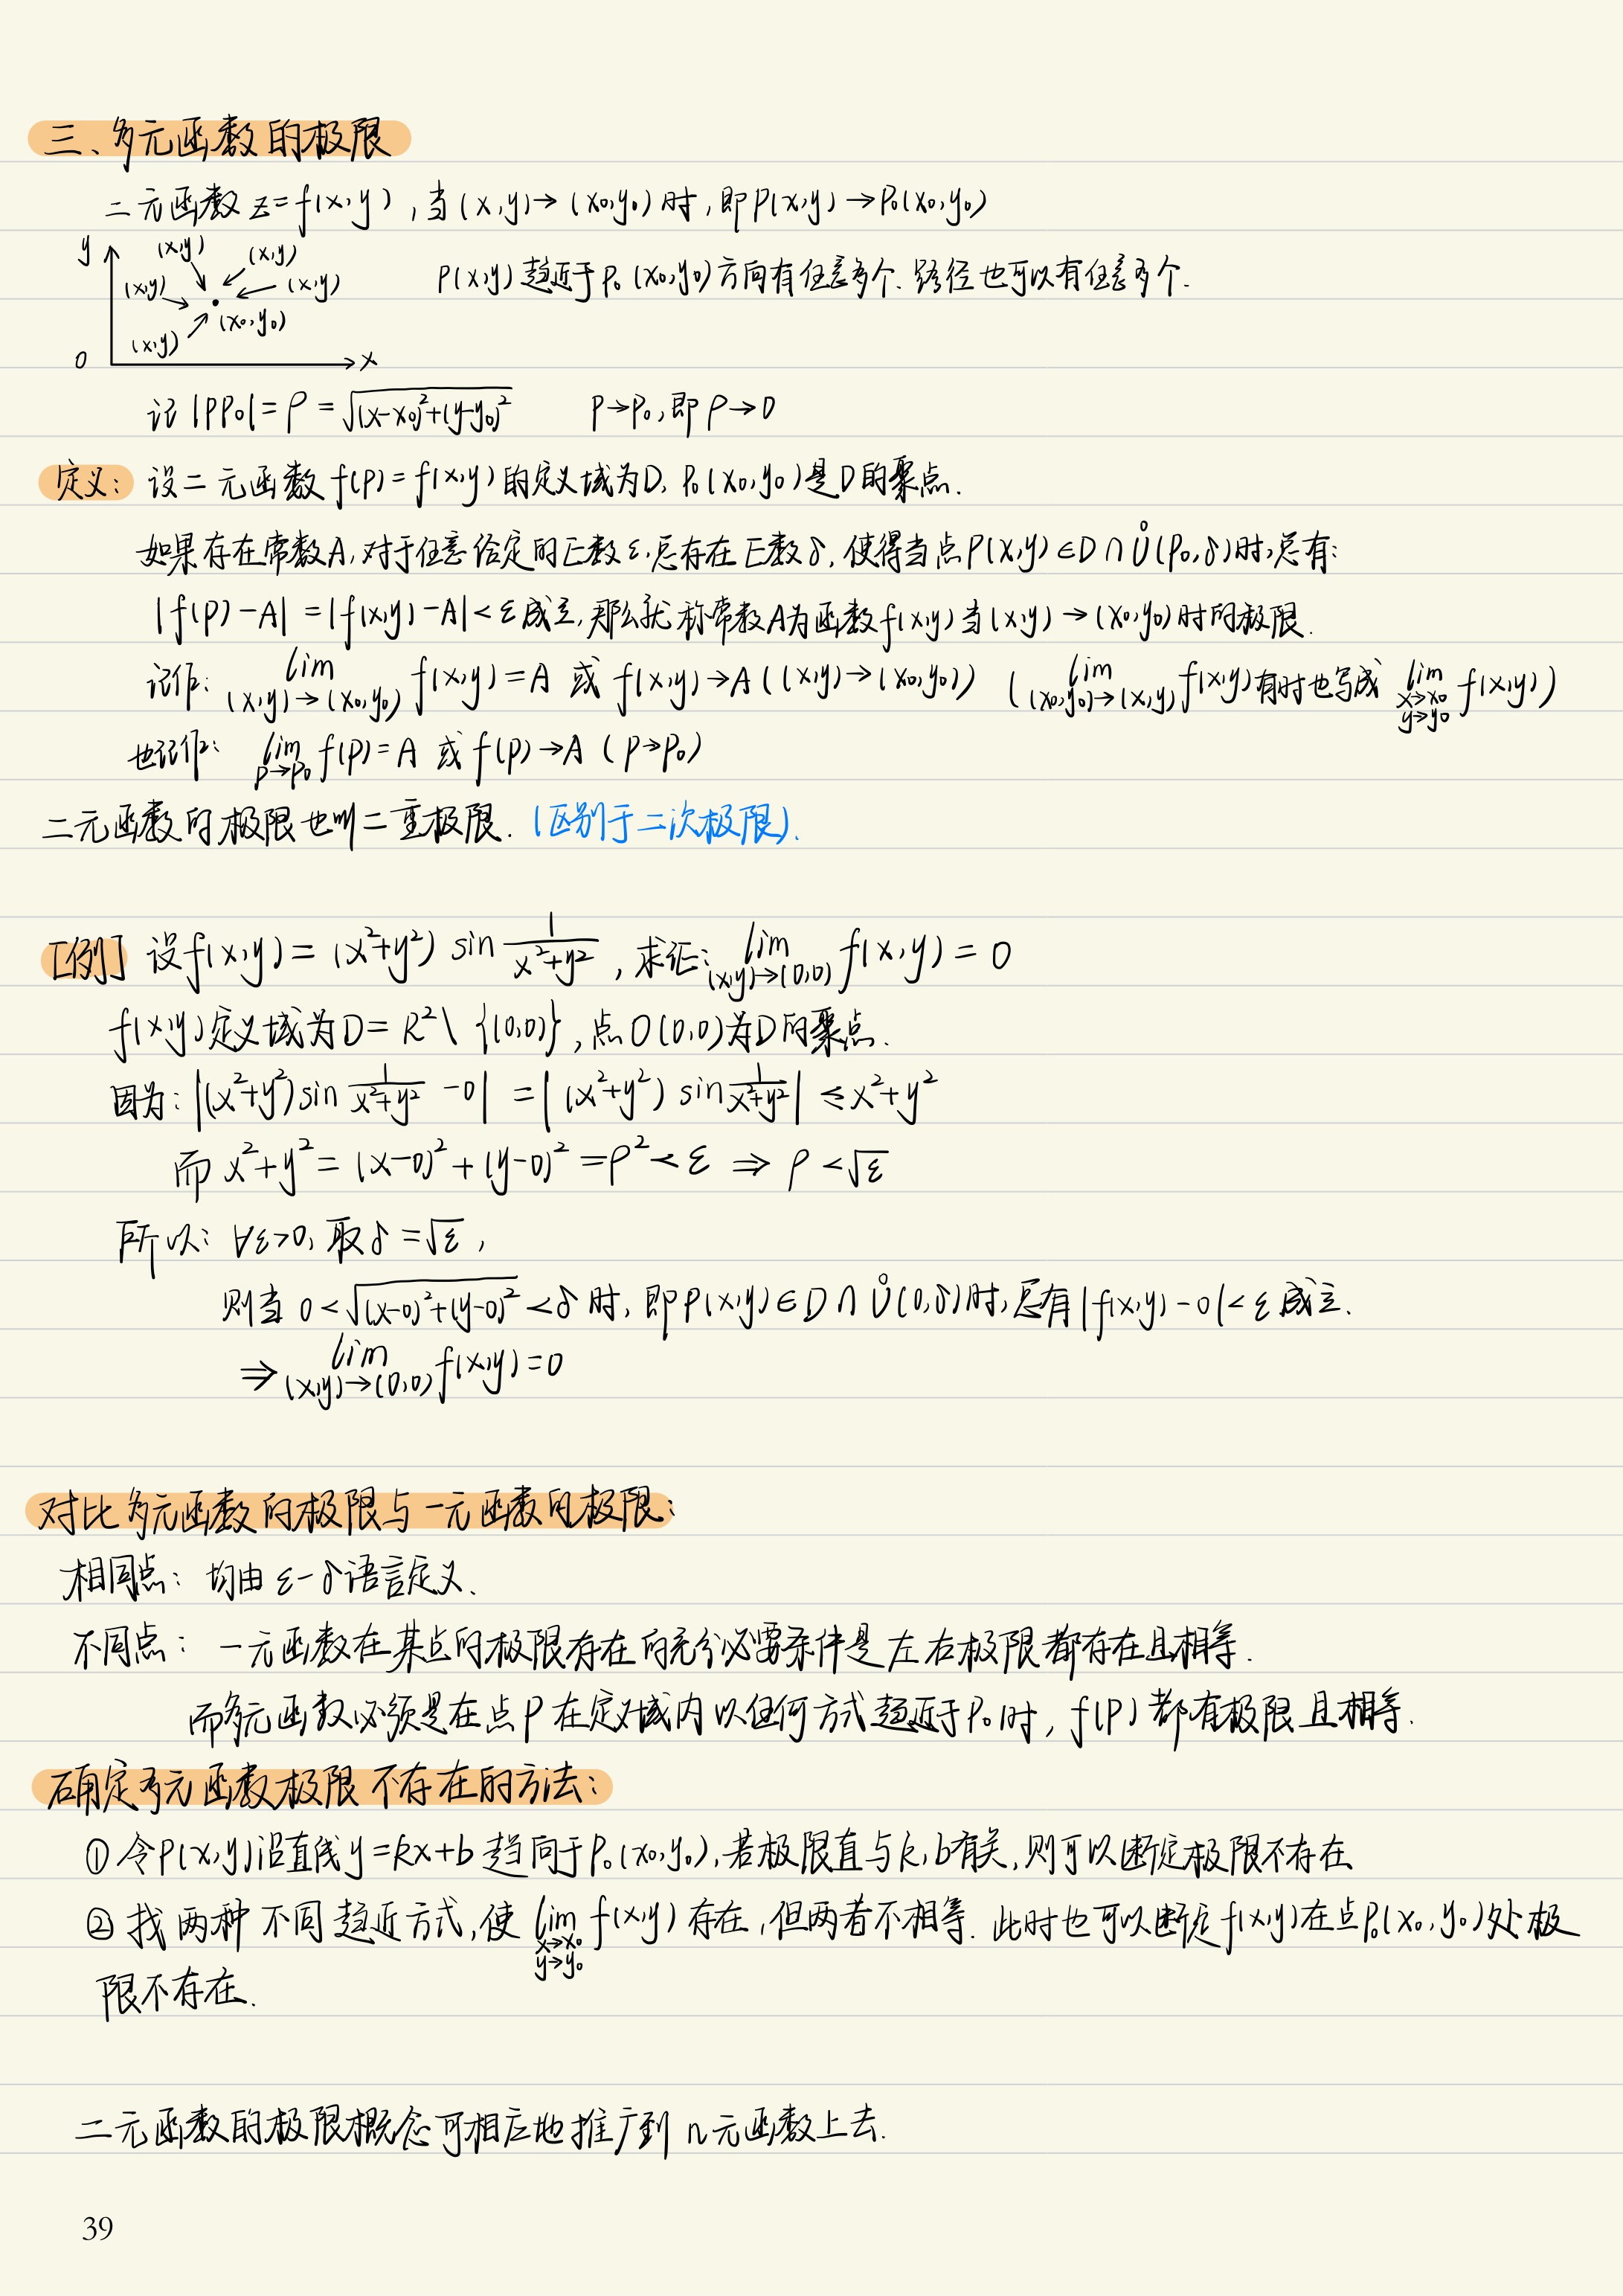 三、多元函数的极限
二元函数 z=f(x,y),当(x,y)→(x₀,y₀)时,即P(x,y)→P₀(x₀,y₀)
y
(x,y) (x,y)
(x,y) (x,y)
(x₀,y₀)
(x,y)
0 x
P(x,y)趋近于P₀(x₀,y₀)方向有任意多个.路径也可以有任意多个.
记 |PP₀|=ρ=√((x-x₀)²+(y-y₀)²) P→P₀,即ρ→0
定义: 设二元函数f(P)=f(x,y)的定义域为D, P₀(x₀,y₀)是D的聚点.
如果存在常数A,对于任意给定的正数ε,总存在正数δ,使得当点P(x,y)∈D∩Ů(P₀,δ)时,总有:
|f(P)-A|=|f(x,y)-A|<ε成立,那么就称常数A为函数f(x,y)当(x,y)→(x₀,y₀)时的极限.
记作: lim (x,y)→(x₀,y₀) f(x,y)=A 或 f(x,y)→A((x,y)→(x₀,y₀)) (lim (x₀,y₀)→(x,y) f(x,y)有时也写成 lim x→x₀ y→y₀ f(x,y))
也记作: lim P→P₀ f(P)=A 或 f(P)→A (P→P₀)
二元函数的极限也叫二重极限. (区别于二次极限).
[例] 设f(x,y)=(x²+y²) sin 1/(x²+y²), 求证: lim (x,y)→(0,0) f(x,y)=0
f(x,y)定义域为D=R²\{(0,0)},点O(0,0)为D的聚点.
因为: |(x²+y²)sin 1/(x²+y²) -0| =|(x²+y²) sin 1/(x²+y²)| ≤x²+y²
而 x²+y²=(x-0)²+(y-0)²=ρ²<ε ⇒ ρ<√ε
所以: ∀ε>0,取δ=√ε,
则当 0<√((x-0)²+(y-0)²)<δ时,即P(x,y)∈D∩Ů(0,δ)时,总有|f(x,y)-0|<ε成立.
⇒ lim (x,y)→(0,0) f(x,y)=0
对比多元函数的极限与一元函数的极限:
相同点: 均由ε-δ语言定义.
不同点: 一元函数在某点的极限存在的充分必要条件是左右极限都存在且相等.
而多元函数必须是在点P在定义域内以任何方式趋近于P₀时,f(P)都有极限且相等.
确定多元函数极限不存在的方法:
① 令P(x,y)沿直线y=kx+b趋向于P₀(x₀,y₀),若极限直与k,b有关,则可以断定极限不存在
② 找两种不同趋近方式,使 lim x→x₀ y→y₀ f(x,y)存在,但两者不相等.此时也可以断定f(x,y)在点P₀(x₀,y₀)处极
限不存在.
二元函数的极限概念可相应地推广到n元函数上去.
39